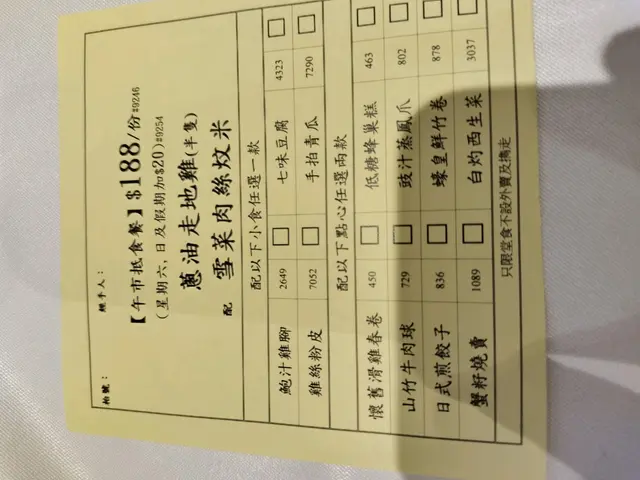 枱號： 經手人：
【午市抵食餐】$188/份#9246
(星期六,日及假期加$20)#9254
蔥油走地雞(半隻)
配 雪菜肉絲炆米
配以下小食任選一款
鮑汁雞腳 2649 □ 七味豆腐 4323 □
雞絲粉皮 7052 □ 手拍青瓜 7290 □
配以下點心任選兩款
懷舊滑雞春卷 450 □ 低糖蜂巢糕 463 □
山竹牛肉球 729 □ 豉汁蒸鳳爪 802 □
日式煎餃子 836 □ 蠔皇鮮竹卷 878 □
蟹籽燒賣 1089 □ 白灼西生菜 3037 □
只限堂食不設外賣及攜走